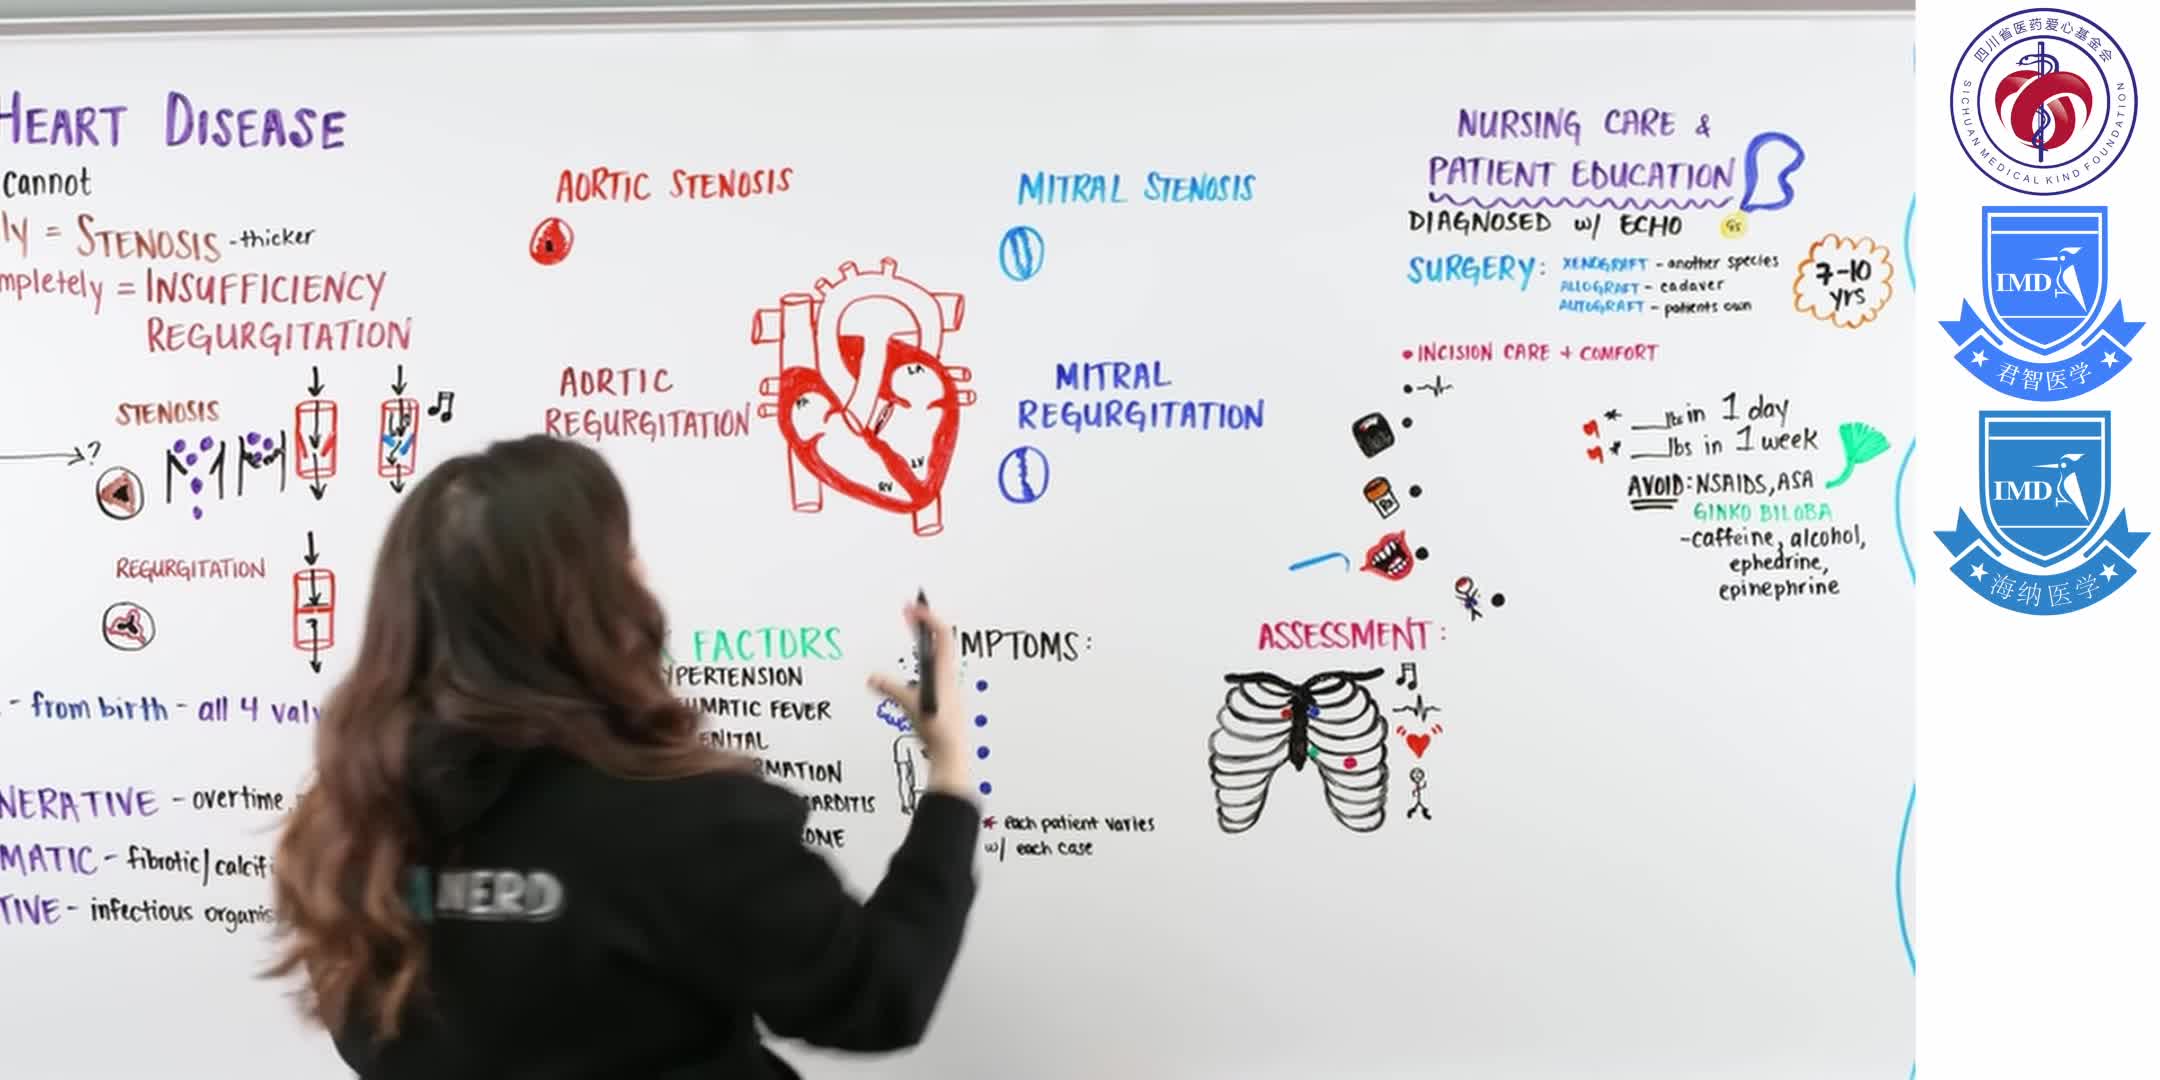 HEART DISEASE
cannot
ly = STENOSIS - thicker
mpletely = INSUFFICIENCY
REGURGITATION
STENOSIS
?
REGURGITATION
- from birth - all 4 valv
NERATIVE - overtime
MATIC - fibrotic/calcifi
TIVE - infectious organis
AORTIC STENOSIS
AORTIC
REGURGITATION
MITRAL STENOSIS
MITRAL
REGURGITATION
LA
RA
LV
RV
FACTORS
YPERTENSION
UMATIC FEVER
ENITAL
RMATION
CARDITIS
OME
MPTOMS:
* each patient varies
w/ each case
ASSESSMENT:
NURSING CARE &
PATIENT EDUCATION
DIAGNOSED w/ ECHO
SURGERY: XENOGRAFT - another species
ALLOGRAFT - cadaver
AUTOGRAFT - patients own
7-10
yrs
• INCISION CARE + COMFORT
* ___lbs in 1 day
* ___lbs in 1 week
Rx
AVOID: NSAIDS, ASA
GINKO BILOBA
- caffeine, alcohol,
ephedrine,
epinephrine
NERD
四川省医药爱心基金会
SICHUAN MEDICAL KIND FOUNDATION
IMD
君智医学
IMD
海纳医学